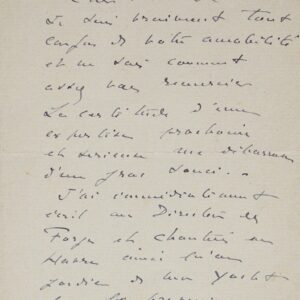 Je suis vraiment tout
confus de votre amabilité
et ne sais comment
assez vous remercier
La certitude d'une
expertise prochaine
et sérieuse me débarrasse
d'un gros souci.
J'ai immédiatement
écrit au Directeur des
Forges et chantiers du
Havre ainsi qu'au
gardien de mon Yacht